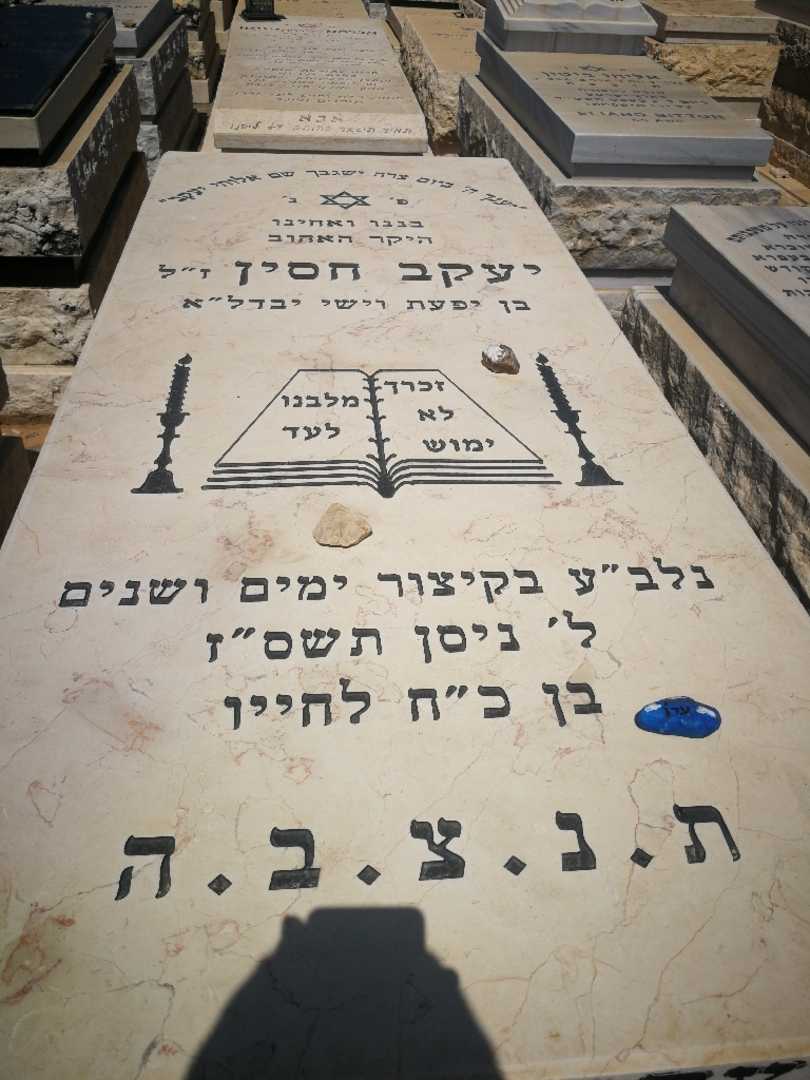 "יענך ה' ביום צרה ישגבך שם אלוהי יעקב"
פ' נ'
בננו ואחינו
היקר האהוב
יעקב חסין ז"ל
בן יפעת וישי יבדל"א
זכרך
לא
ימוש
מלבנו
לעד
נלב"ע בקיצור ימים ושנים
ל' ניסן תשס"ז
בן כ"ח לחייו
עדן
ת.נ.צ.ב.ה
אבא
אליהו ביטון
ELIAHO BITTON